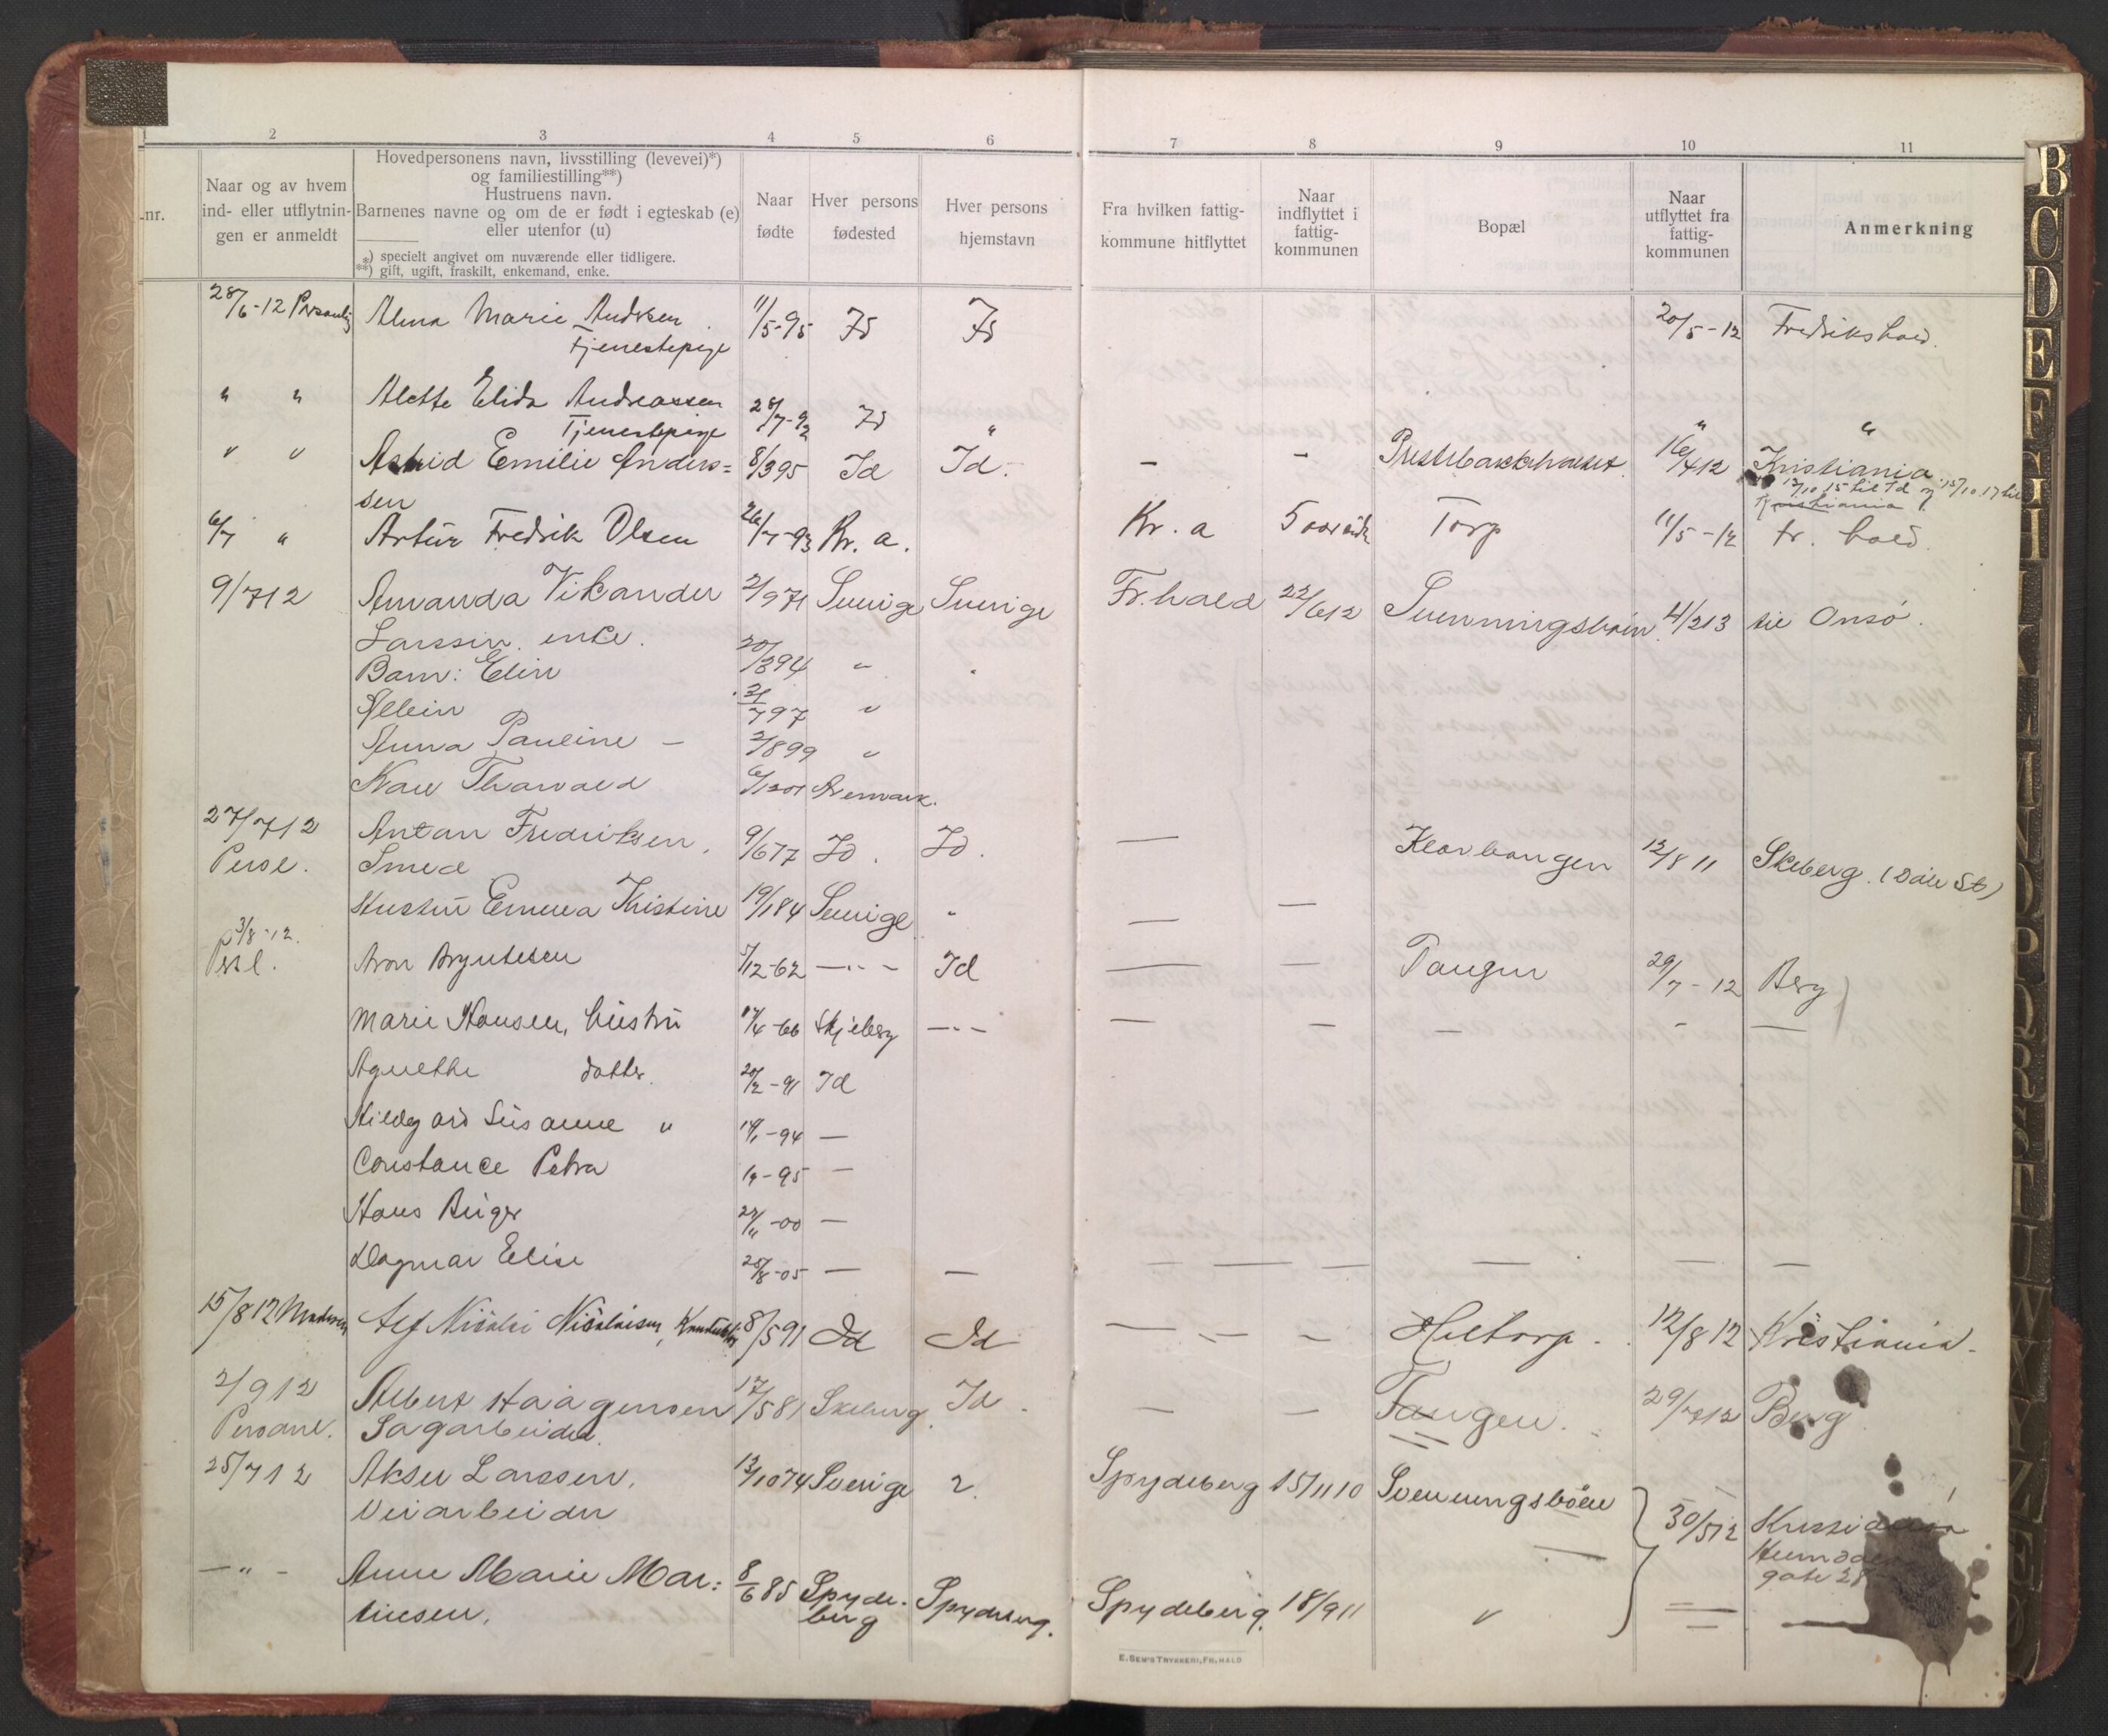 1 2 3 4 5 6 7 8 9 10 11
-nr.
Naar og av hvem
ind- eller utflytnin-
gen er anmeldt
Hovedpersonens navn, livsstilling (levevei)*)
og familiestilling**)
Hustruens navn.
Barnenes navne og om de er født i egteskab (e)
eller utenfor (u)
*) specielt angivet om nuværende eller tidligere.
**) gift, ugift, fraskilt, enkemand, enke.
Naar
fødte
Hver persons
fødested
Hver persons
hjemstavn
Fra hvilken fattig-
kommune hitflyttet
Naar
indflyttet i
fattig-
kommunen
Bopæl
Naar
utflyttet fra
fattig-
kommunen
Anmerkning
28/6-12 Personlig Alma Marie Andersen 11/5-95 Id Id 20/5-12 Fredrikshald.
Tjenestepige
" " Alette Elida Andreassen 28/7-92 Id " " "
Tjenestepige
" " Astrid Emilie Anders= 8/3 95 Id Id. - - Prestebakkehalset 16/4 12 Kristiania
sen 12/10 15 til Id og 15/10 17 til
Kristiania
6/7 " Artur Fredrik Olsen 26/7-93 Kr. a. Kr. a Torp 11/5-12 fr. hald.
9/7 12 Amanda Vikander 2/9 71 Sverige Sverige Fr.hald 22/6 12 Svenningsbøen 4/2 13 til Onsø.
Larssen. enke.
Barn: Elin 20/3 94 "
21/7 97 "
Anna Pauline - 2/8 99 "
Karl Thorvald 6/12 01 Aremark.
27/7 12 Anton Fredriksen, 9/6 77 Id. Id. — Klorbangen 12/8 11 Skeberg. (Dale St)
Persl. Smed
Hustru Emma Kristine 19/1 84 Sverige " — —
3/8-12. Persl. Aron Bryntesen 5/12-62 —"— Id — — Tangen 29/7-12 Berg
Marie Hansen, hustru 14/4-66 Skjeberg —"— — — — - —
Agnethe datter. 20/2-91 Id
Hildegard Susanne " 19/1-94 —
Constance Petra -95 —
Hans Birger 27/11-00 —
Dagmar Elise 25/8-05 — — — — — — — —
15/8 12 Alf Nicolai Nicolaisen, Konduktør 8/5 91 Id Id — - - Holtorp. 12/8 12 Kristiania.
2/9 12 Albert Haagensen 17/5 81 Skeberg. Id. — — Tangen. 29/7 12 Berg
Personl. Sagarbeider.
25/7 12 Aksel Larssen, 13/10 74 Sverige ?. Spydeberg 15/11 10 Svenningsbøen
Veiarbeider 30/5 12 Kristiania
gate 28
—"— Anne Marie Mar= 8/6 85 Spyde- Spydeberg. Spydeberg. 18/9 11 "
tinsen, berg
E. SEM'S TRYKKERI, FR.HALD
B
C
D
E
F
G